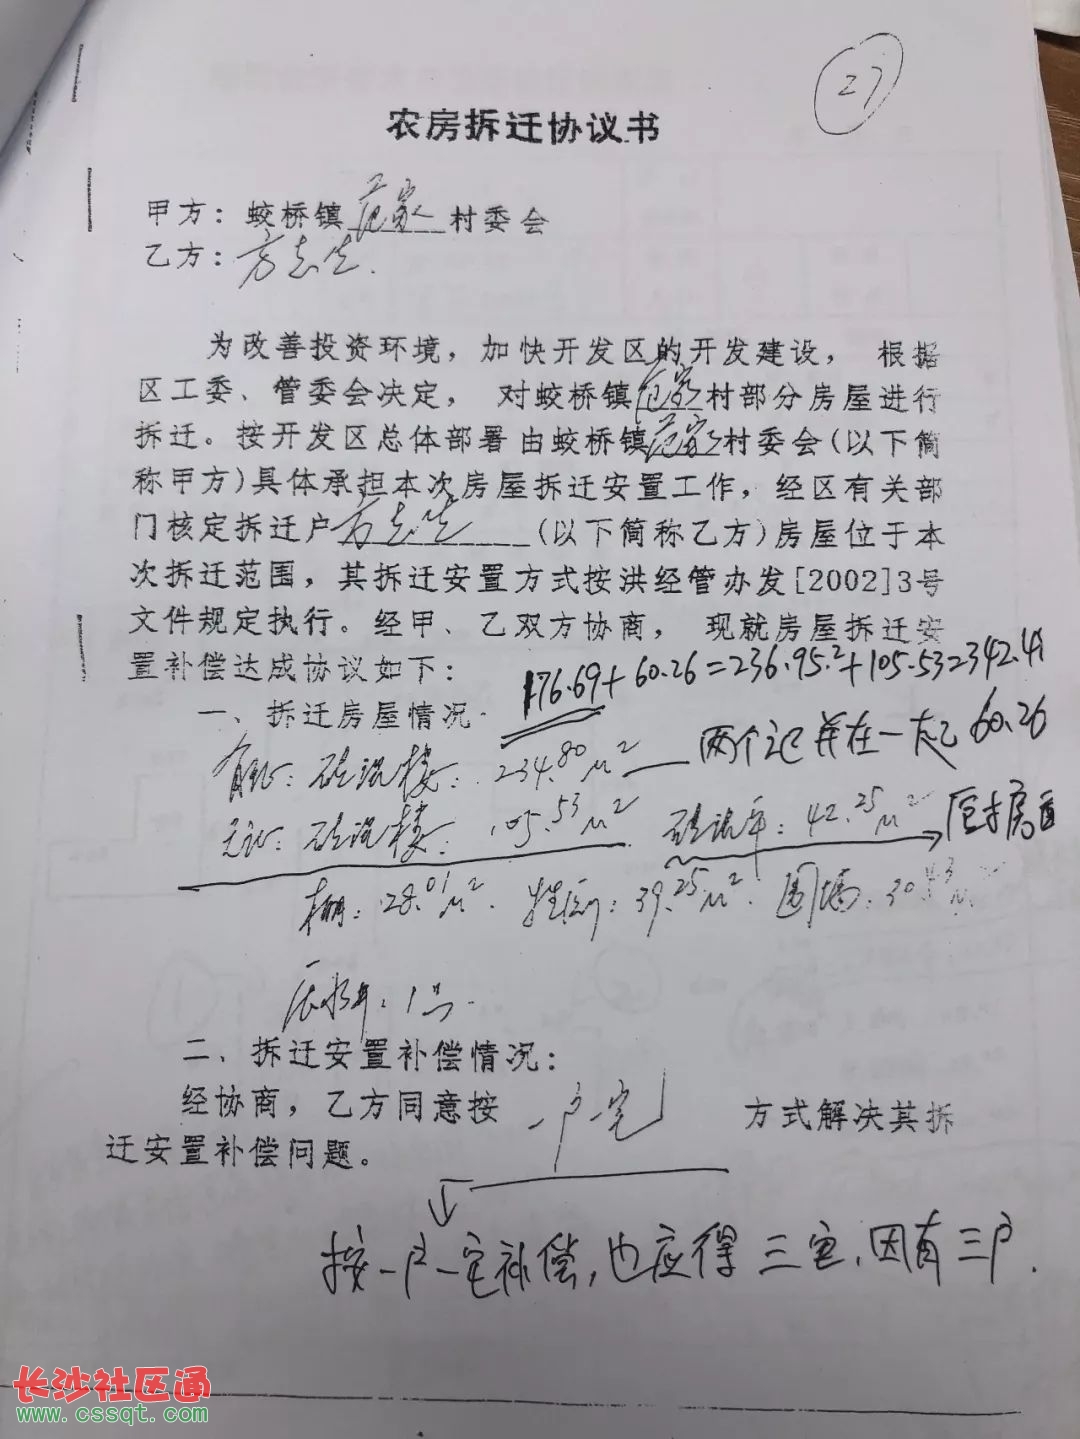 27
农房拆迁协议书
甲方：蛟桥镇范家村委会
乙方：方志生.
为改善投资环境，加快开发区的开发建设， 根据
区工委、管委会决定， 对蛟桥镇范家村部分房屋进行
拆迁。按开发区总体部署由蛟桥镇范家村委会(以下简
称甲方)具体承担本次房屋拆迁安置工作，经区有关部
门核定拆迁户方志生(以下简称乙方)房屋位于本
次拆迁范围，其拆迁安置方式按洪经管办发[2002]3号
文件规定执行。经甲、乙双方协商， 现就房屋拆迁安
置补偿达成协议如下：
176.69+60.26=236.95.²+105.53=342.4
一、拆迁房屋情况.
有证：砖混楼：234.80M² 两个记并在一起 60.26
无证：砖混楼：105.53M² 砖混平：42.25M² 房
棚：28.01M². 牲间：39.25M². 围墙：30.43M
压水井：1
二、拆迁安置补偿情况：
经协商，乙方同意按 一户一宅 方式解决其拆
迁安置补偿问题。
按一户一宅补偿，也应得三宅，因有三户.
长沙社区通
www.cssqt.com